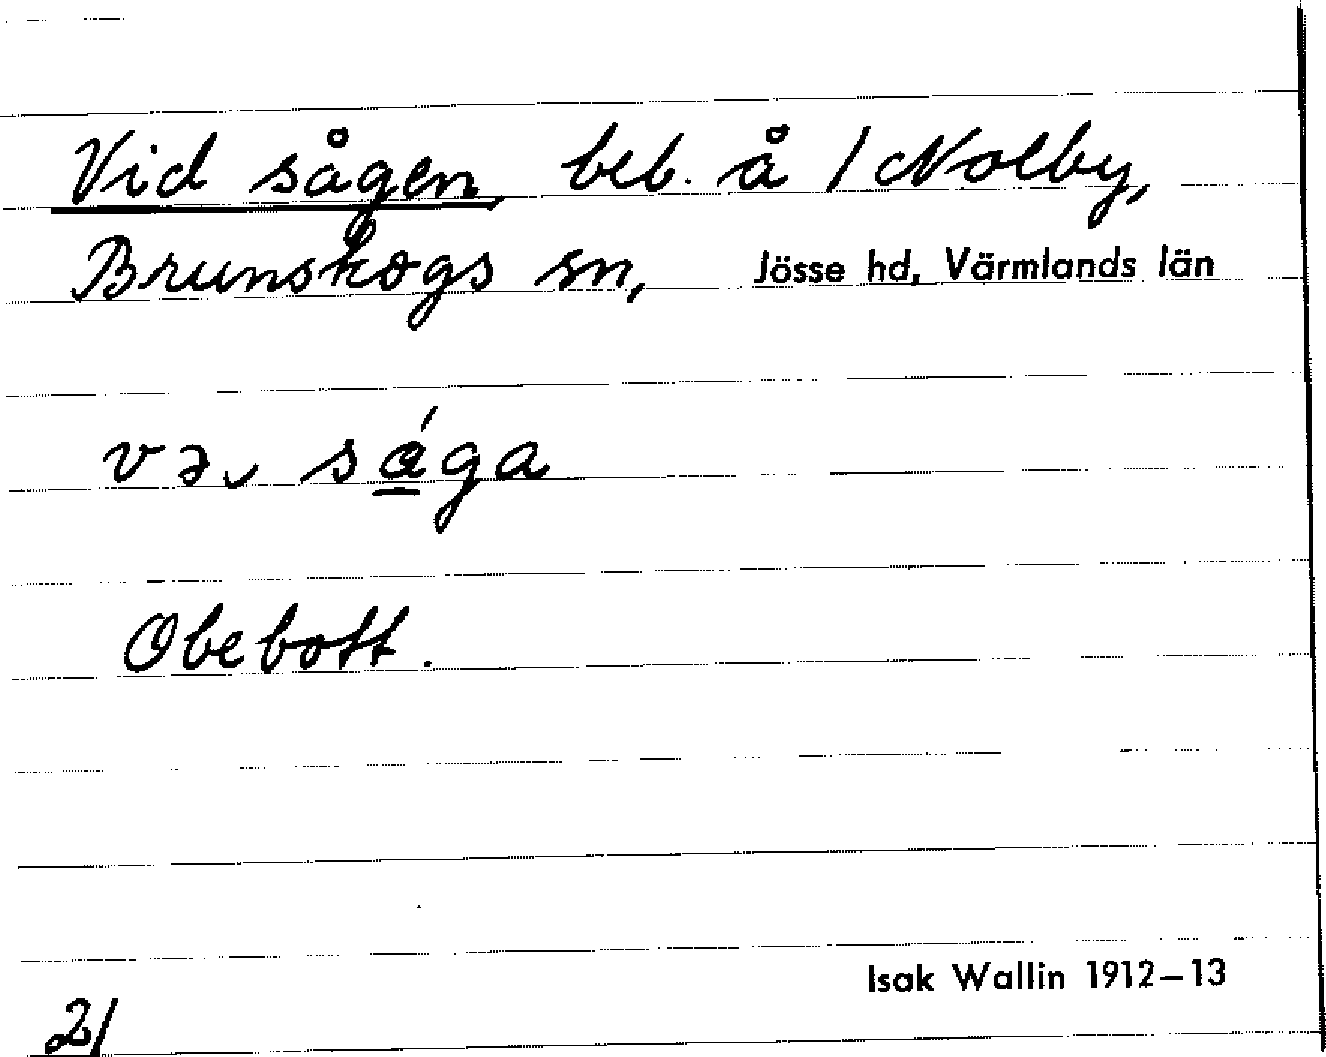 Vid sågen, beb. å /Nolby,
Brunskogs sn, Jösse hd, Värmlands län
və˯ sága
Obebott.
Isak Wallin 1912–13
21